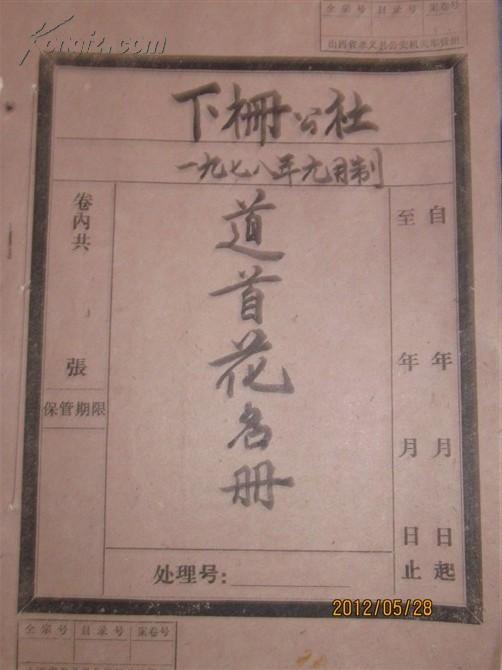 Kongfz.com
全宗号 目录号 案卷号
山西省孝义县公安机关
下栅公社
一九七八年九月制
道首花名册
卷内共 張
保管期限
自 年 月 日起
至 年 月 日止
处理号:
2012/05/28
全宗号 目录号 案卷号